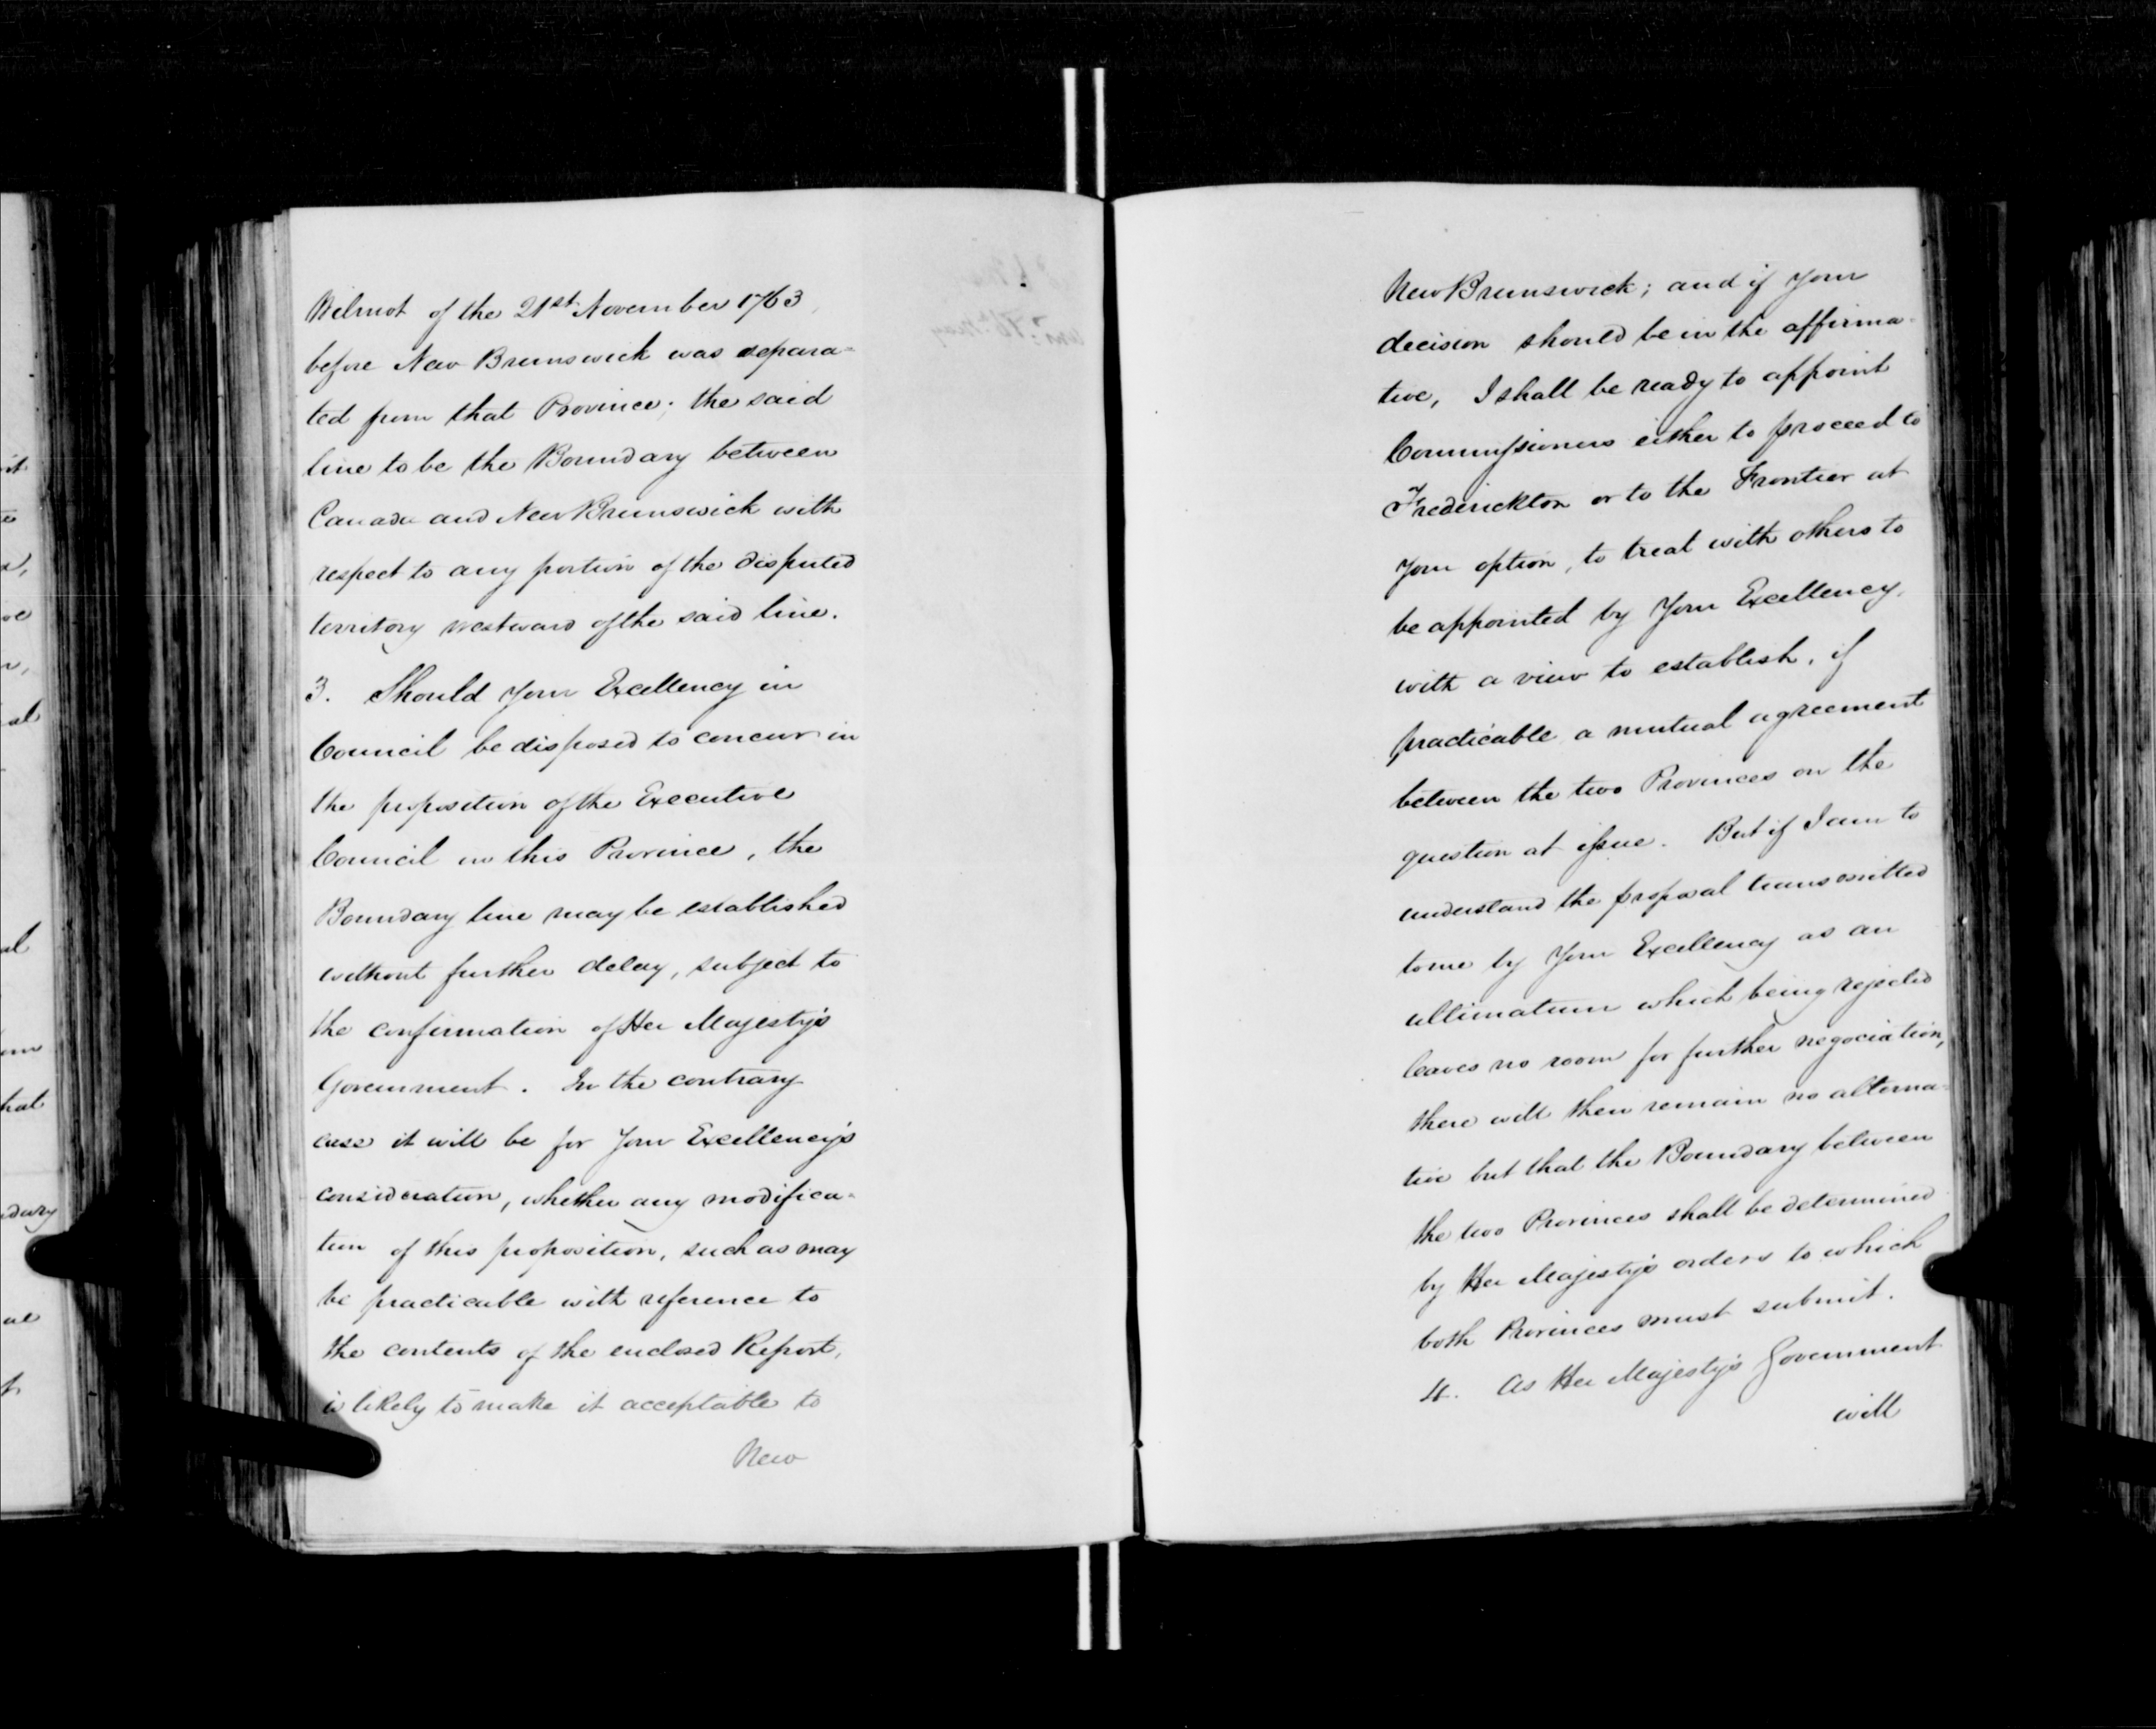 Wilmot of the 21st November 1763,
before New Brunswick was separa=
ted from that Province; the said
line to be the Boundary between
Canada and New Brunswick with
respect to any portion of the disputed
territory westward of the said line.
3. Should Your Excellency in
Council be disposed to concur in
the proposition of the Executive
Council in this Province, the
Boundary line may be established
without further delay, subject to
the confirmation of Her Majesty's
Government. In the contrary
case it will be for Your Excellency's
consideration, whether any modifica-
tion of this proposition, such as may
be practicable with reference to
the contents of the enclosed Report,
is likely to make it acceptable to
New
New Brunswick; and if Your
decision should be in the affirma-
tive, I shall be ready to appoint
Commissioners either to proceed to
Frederickton or to the Frontier at
Your option, to treat with others to
be appointed by Your Excellency,
with a view to establish, if
practicable a mutual agreement
between the two Provinces on the
question at issue. But if I am to
understand the proposal transmitted
to me by Your Excellency as an
ultimatum which being rejected
leaves no room for further negociation,
there will then remain no alterna-
tive but that the Boundary between
the two Provinces shall be determined
by Her Majesty's orders to which
both Provinces must submit.
4. As Her Majesty's Government
will